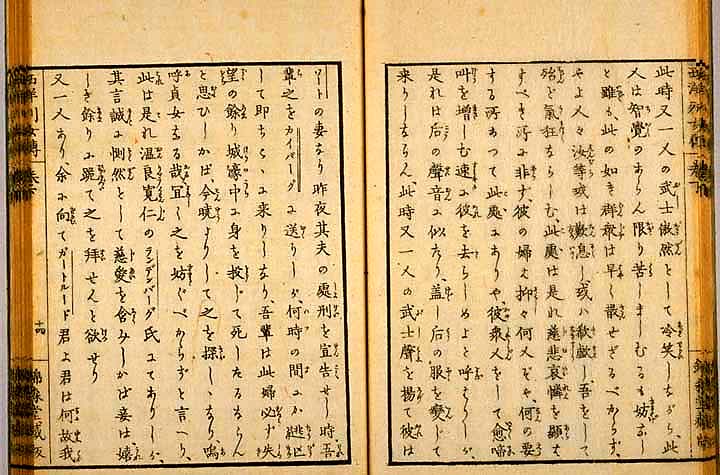 此時又一人の武士傲然として冷笑しながら、此
人は智覺のあらん限り苦しましむるも妨なし
と雖も、此の如き群衆は早く散せざるべからず、
やよ人々汝等或は歎息し或は欷歔し、吾をして
殆ど氣狂ならしむ、此處は是れ慈悲哀憐を顯す
すべき所に非ず、彼の婦は抑々何人ぞや、何の要
する所あつて此處にありや、彼衆人をして愈喧
叫を増しむ速に彼を去らしめよと呼はりしが、
是れは后の聲音に似たり、蓋し后の服を變じて
來りしならん、此時又一人の武士聲を揚て彼は
ワートの妻なり昨夜其夫の處刑を宣告せし時吾
輩之をカイバーグに送りしが、何時の間にか逃
して即ちこゝに來りしなり、吾輩は此婦必ず失
望の餘り城濠中に身を投じて死したるならん
と思ひしかば、今曉よりして之を探しゝなり、嗚
呼貞女なる哉宜しく之を妨ぐべからずと言へり、
此は是れ温良寛仁のランデンバーグ氏にてありしが、
其言誠に惻然として慈愛を含みしかば妾は嬉
しき餘りに跪て之を拜せんと欲せり
又一人あり、余に向てガートルード君よ君は何故我
西洋列女傳 卷下
十四